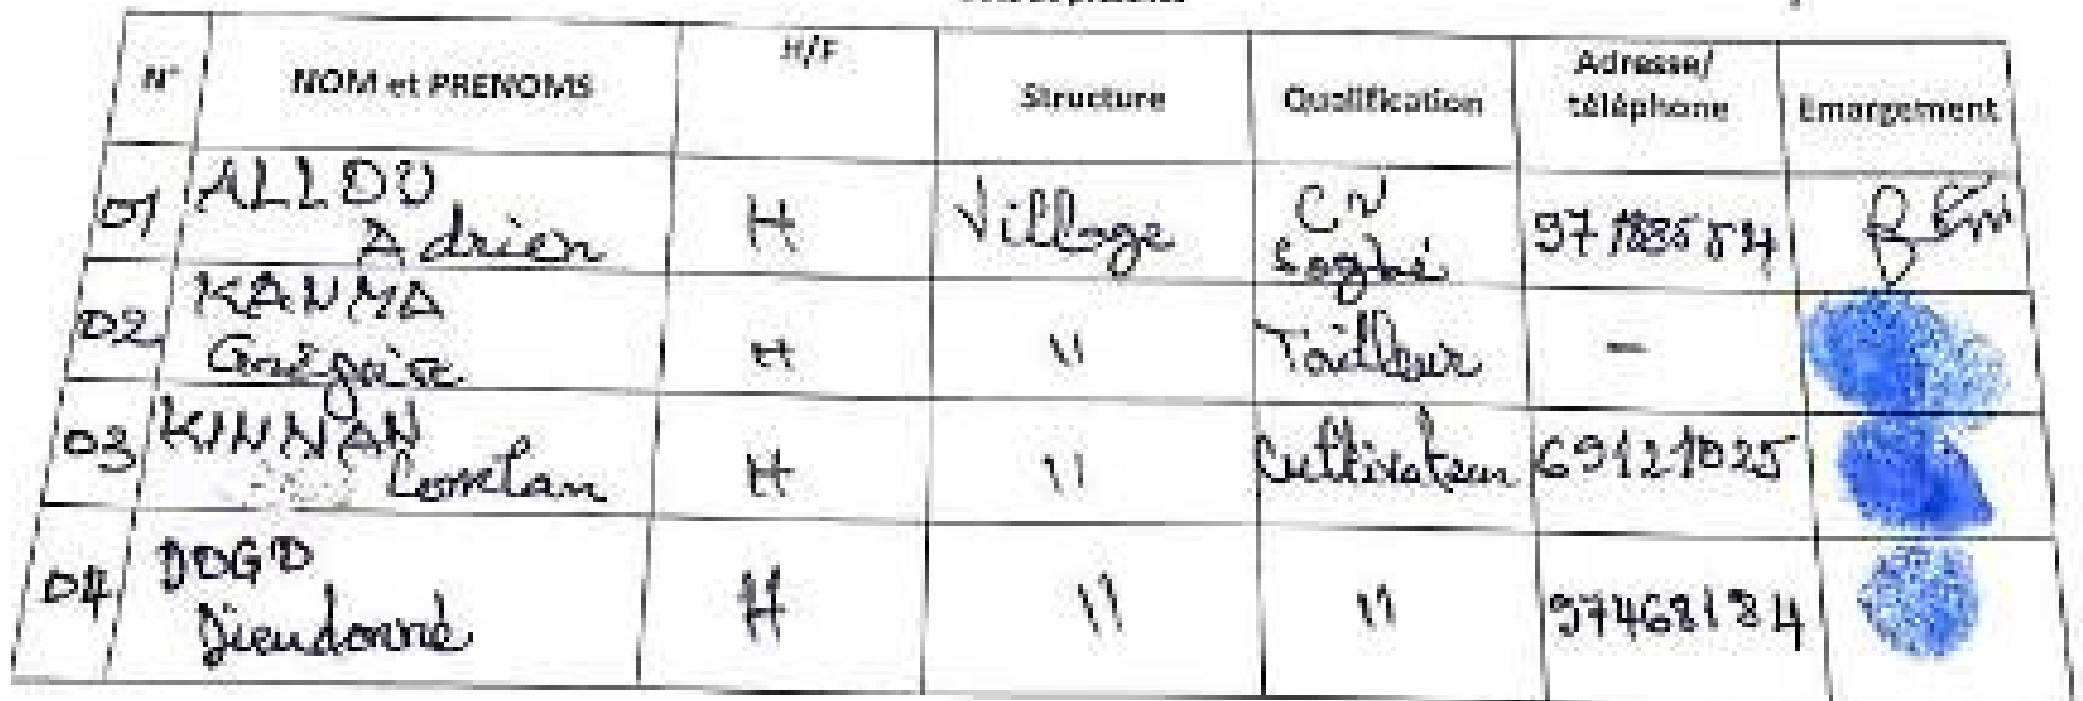 N° NOM et PRENOMS H/F Structure Qualification Adresse/ téléphone Emargement
01 ALLOU Adrien H Village CV 97
02 KANMA Grégoire H " Tailleur –
03 KINNAN Comlan H " Cultivateur 69121025
04 DOGO Dieudonné H " " 97468184